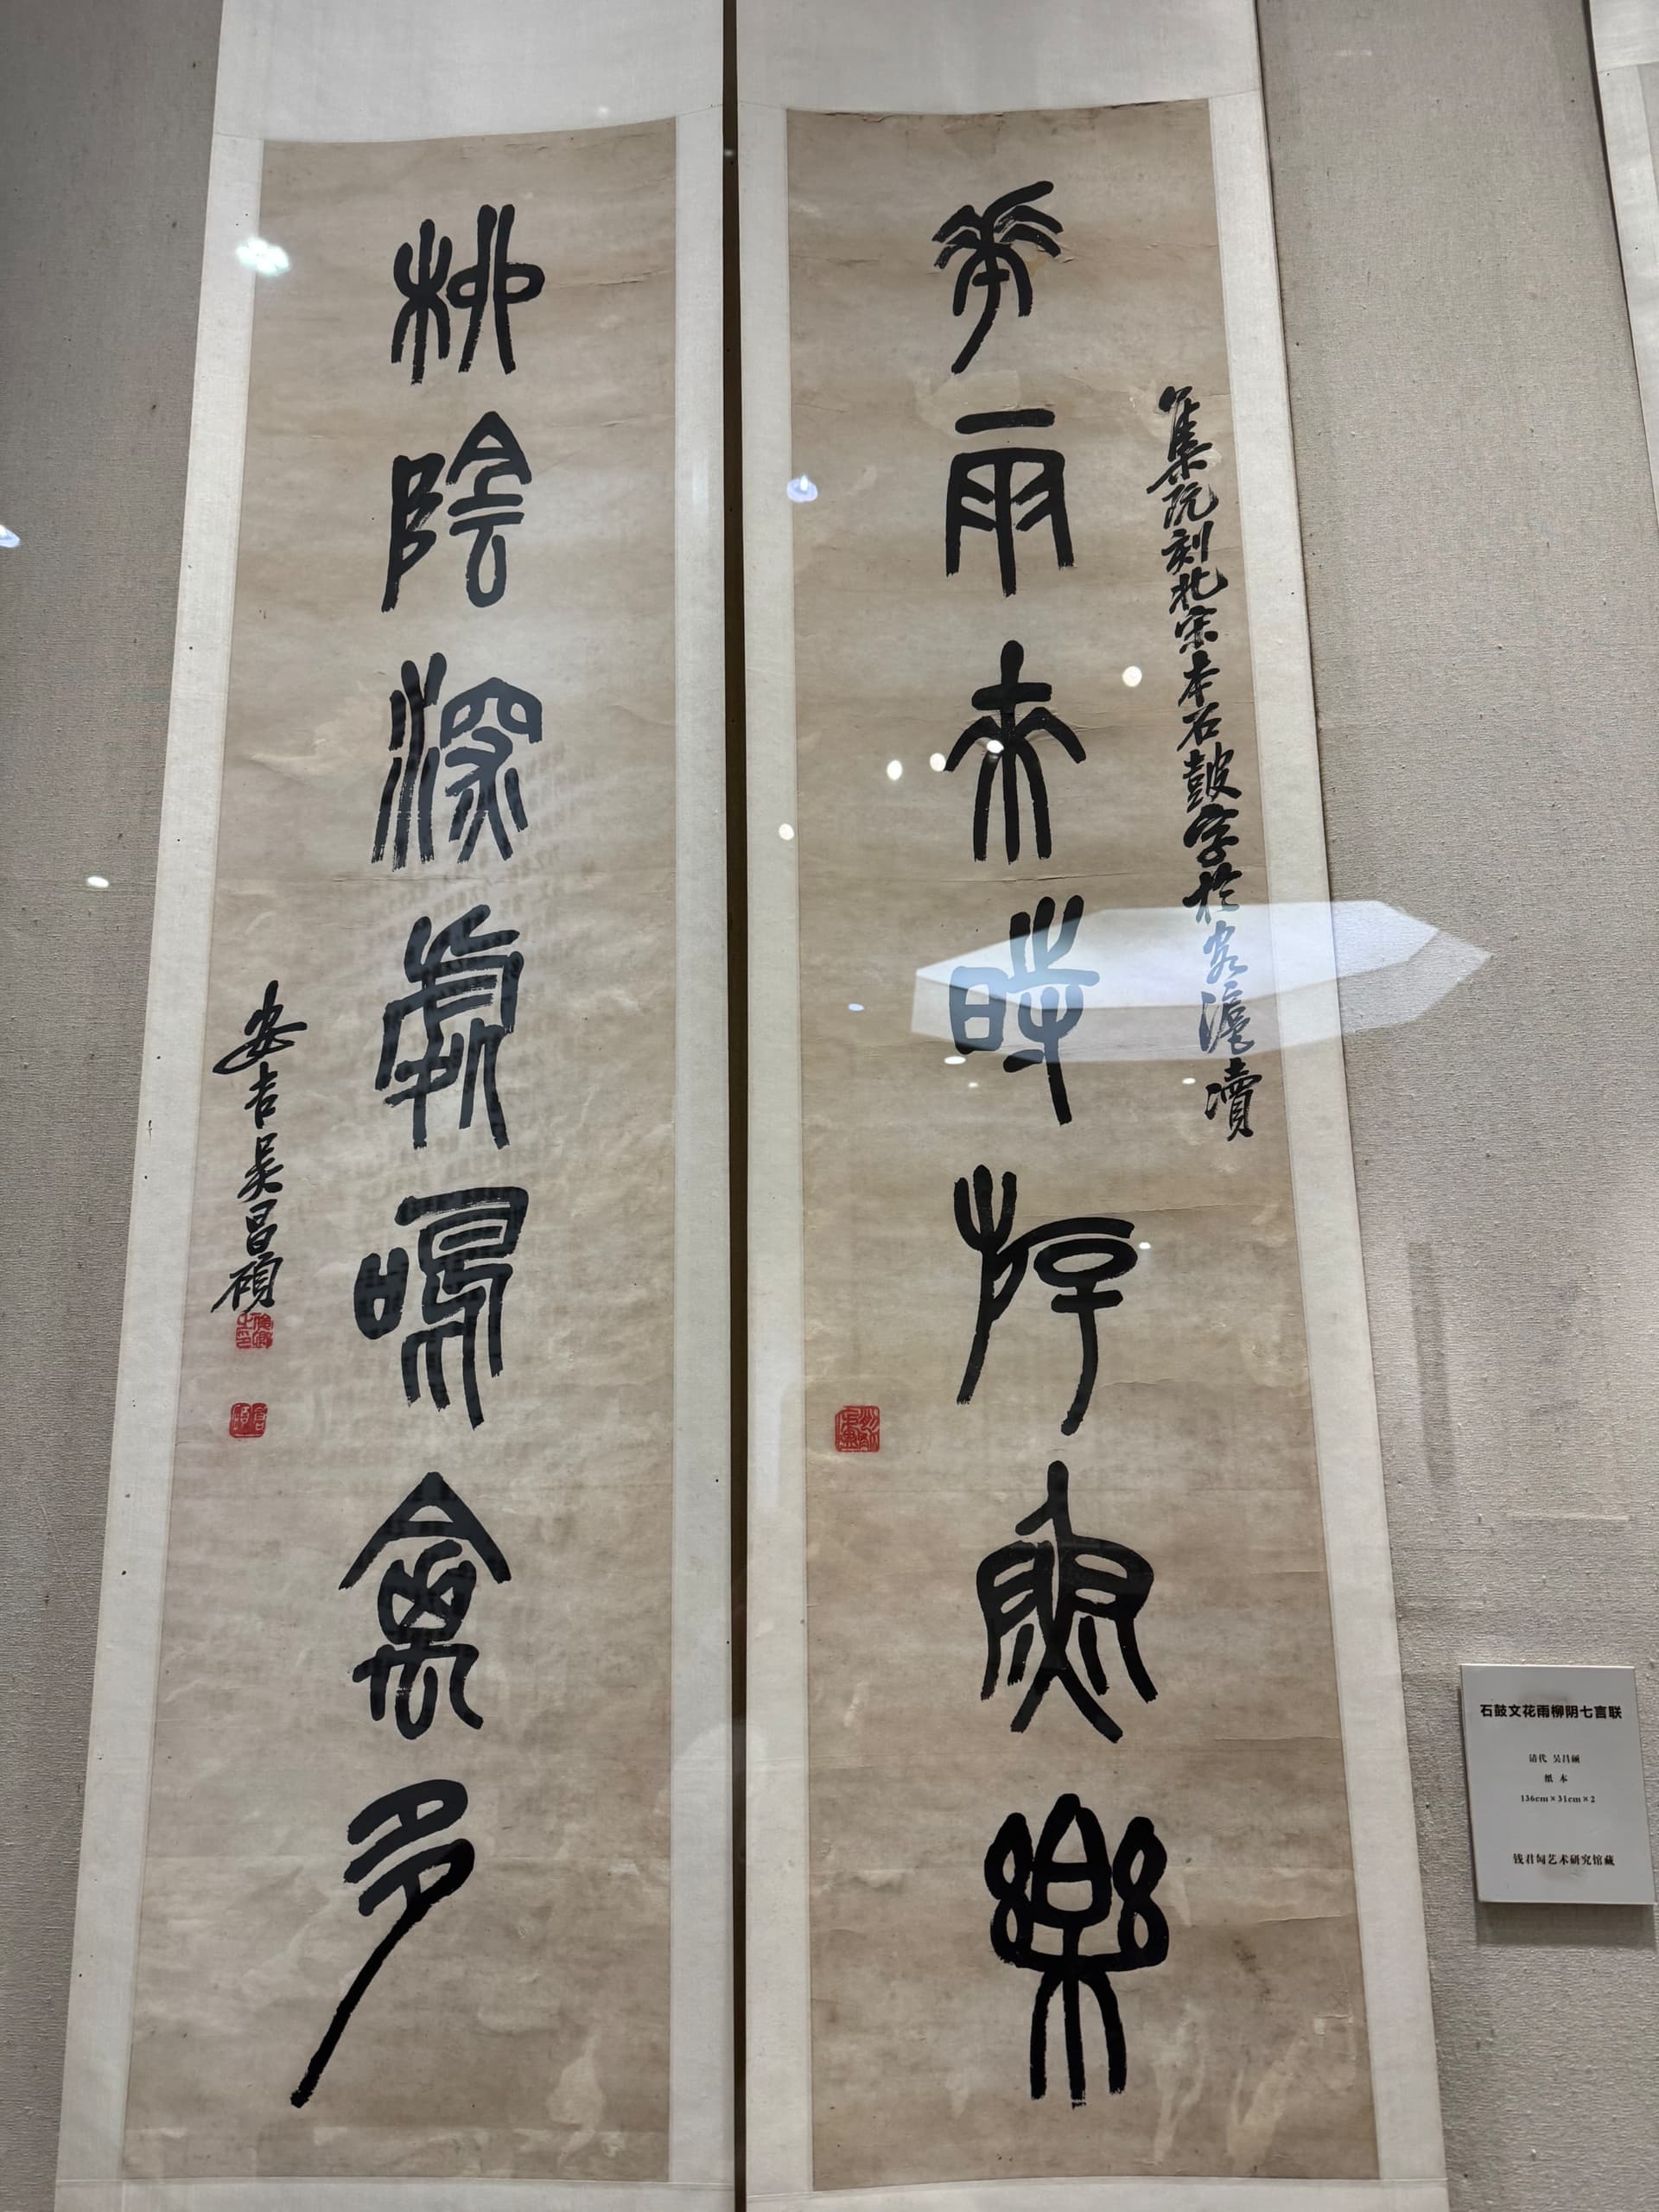 集阮刻北宋本石鼓字於客滬瀆
華雨來時斿魚樂
柳陰深處鳴禽多
安吉吴昌碩
俊卿之印
倉碩
石鼓文花雨柳阴七言联
清代 吴昌硕
纸 本
136cm×31cm×2
钱君匋艺术研究馆藏